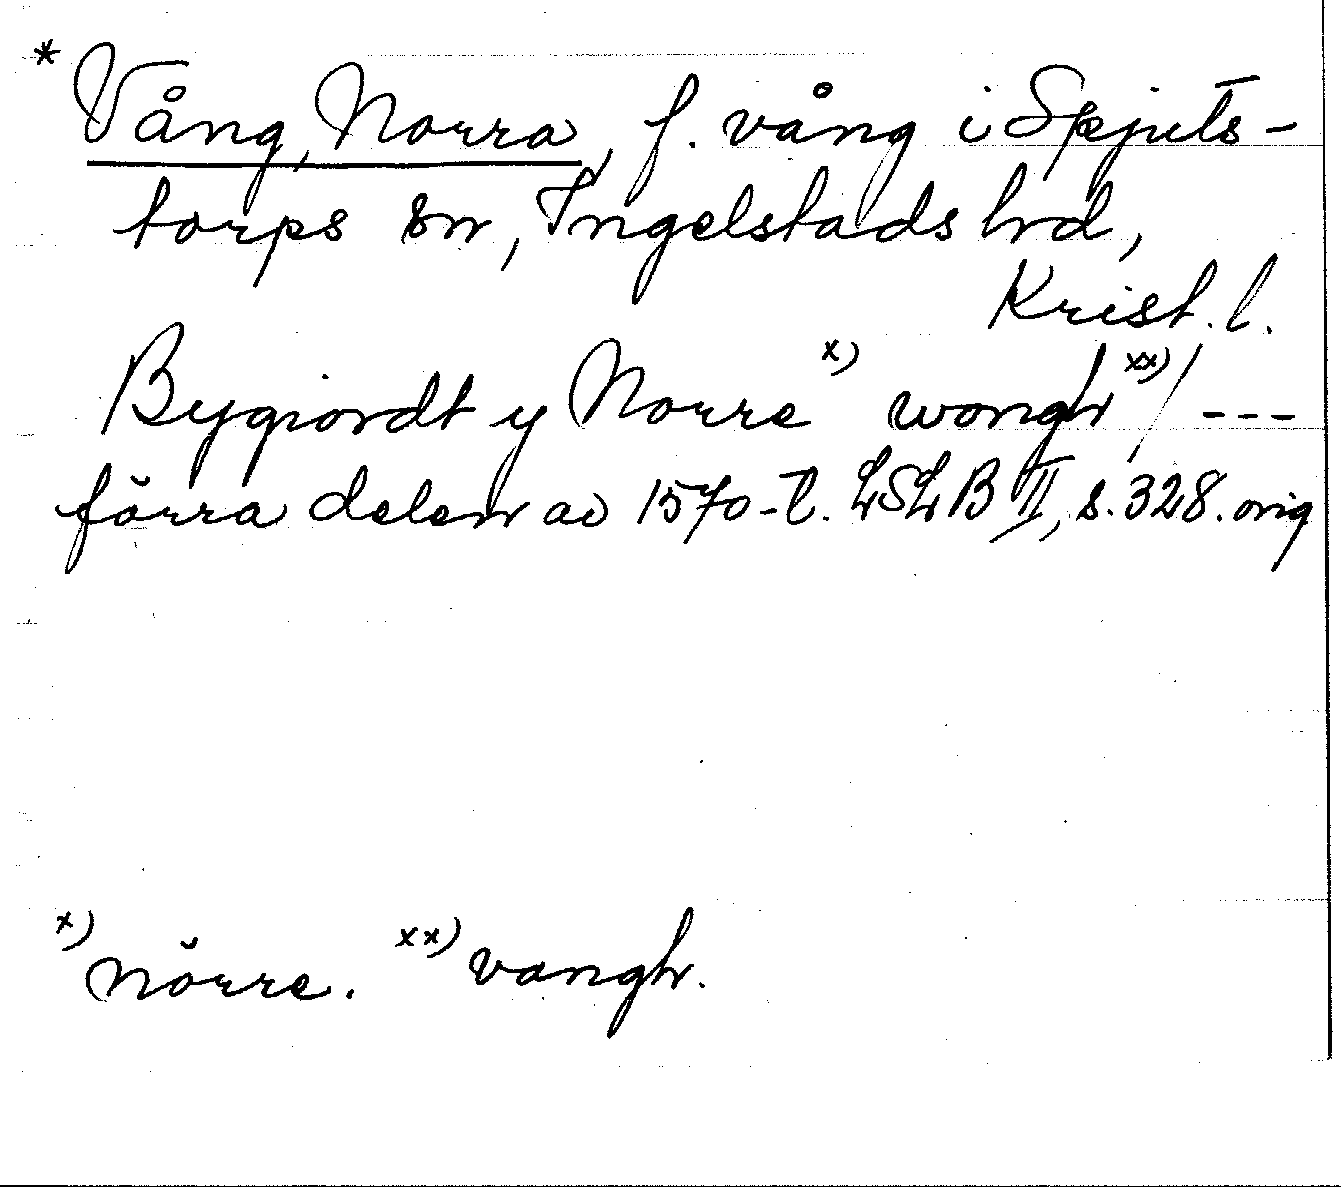 * Vång, Norra, f. vång i Spjuts-
torps sn, Ingelstads hd,
Krist. l.
Bygiordt y Norre x) wongh xx) / ---
förra delen av 1570-t. LSLB II, s. 328. orig
x) nörre. xx) vangh.